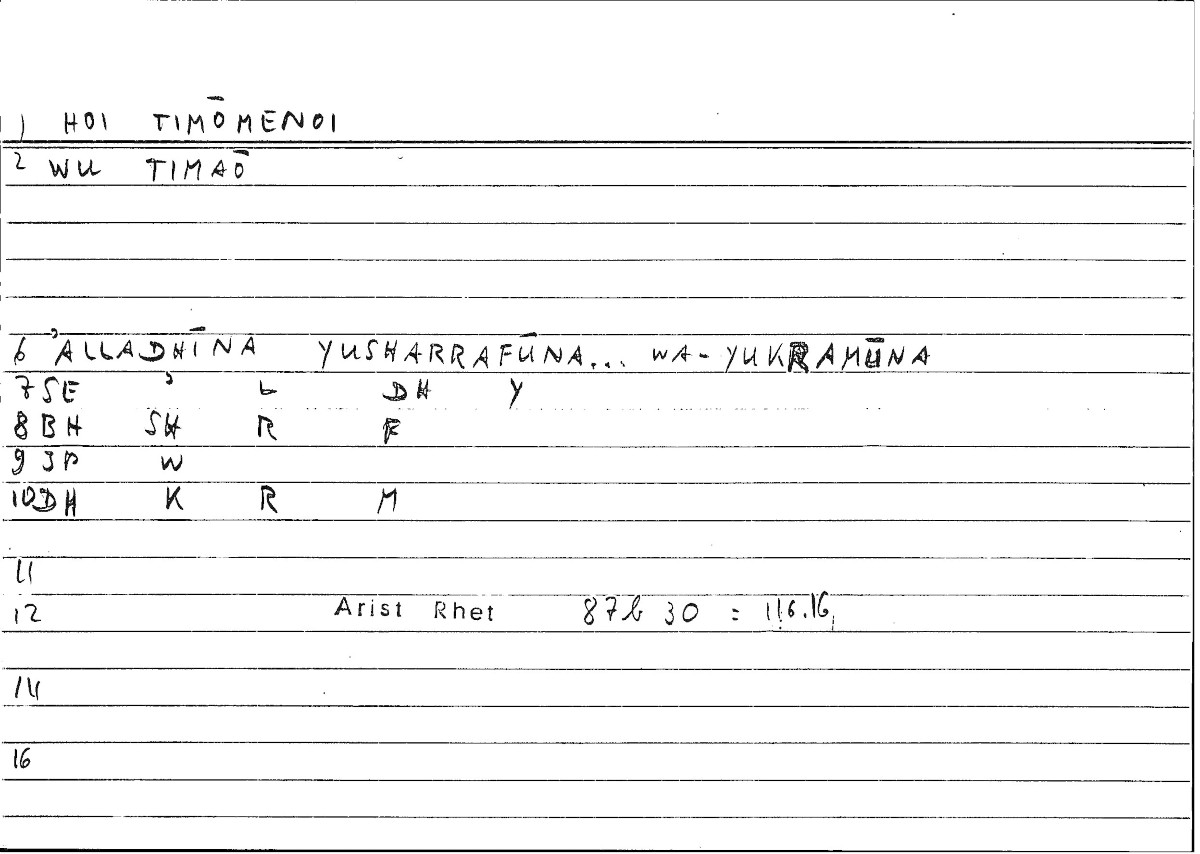 1) HOI TIMŌMENOI
2 WU TIMAŌ
6 'ALLADHĪNA YUSHARRAFŪNA... WA-YUKRAMŪNA
7 SE ' L DH Y
8 BH SH R F
9 JP W
10 DH K R M
11
12 Arist Rhet 87b 30 = 116.16
14
16